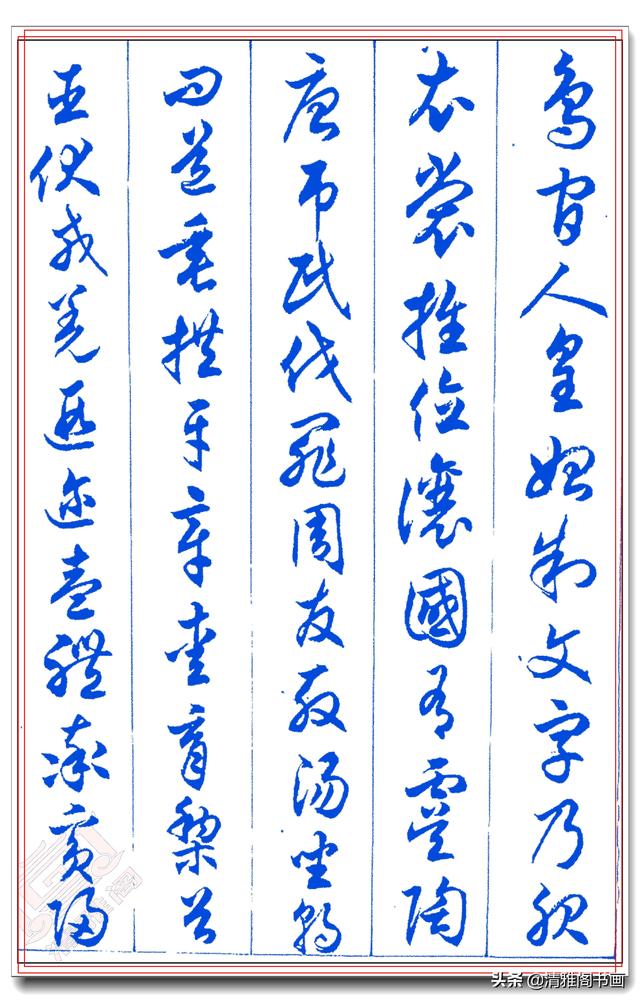 鳥官人皇始制文字乃服
衣裳推位讓國有虞陶
唐弔民伐罪周發殷湯坐朝
問道垂拱平章愛育黎首
臣伏戎羌遐邇壹體率賓歸
头条 @清雅阁书画